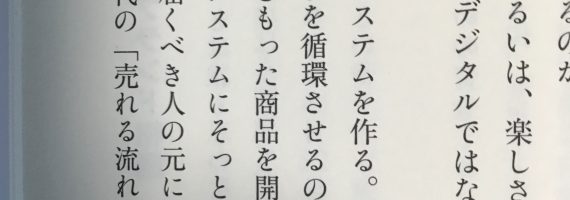 るのか
るいは、楽しさ
デジタルではな
ステムを作る。
を循環させるの
もった商品を開
ステムにそっと
届くべき人の元に
代の「売れる流れ